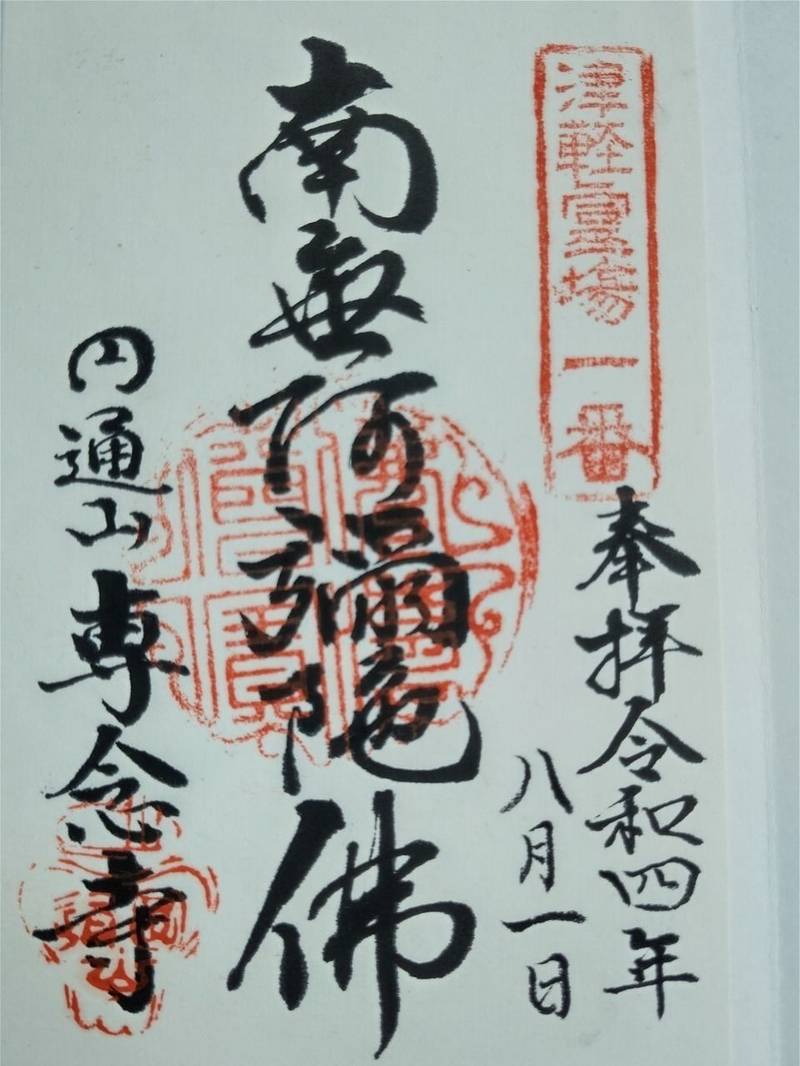 津軽靈場一番
奉拝令和四年
八月一日
南無阿彌陀佛
円通山専念寺